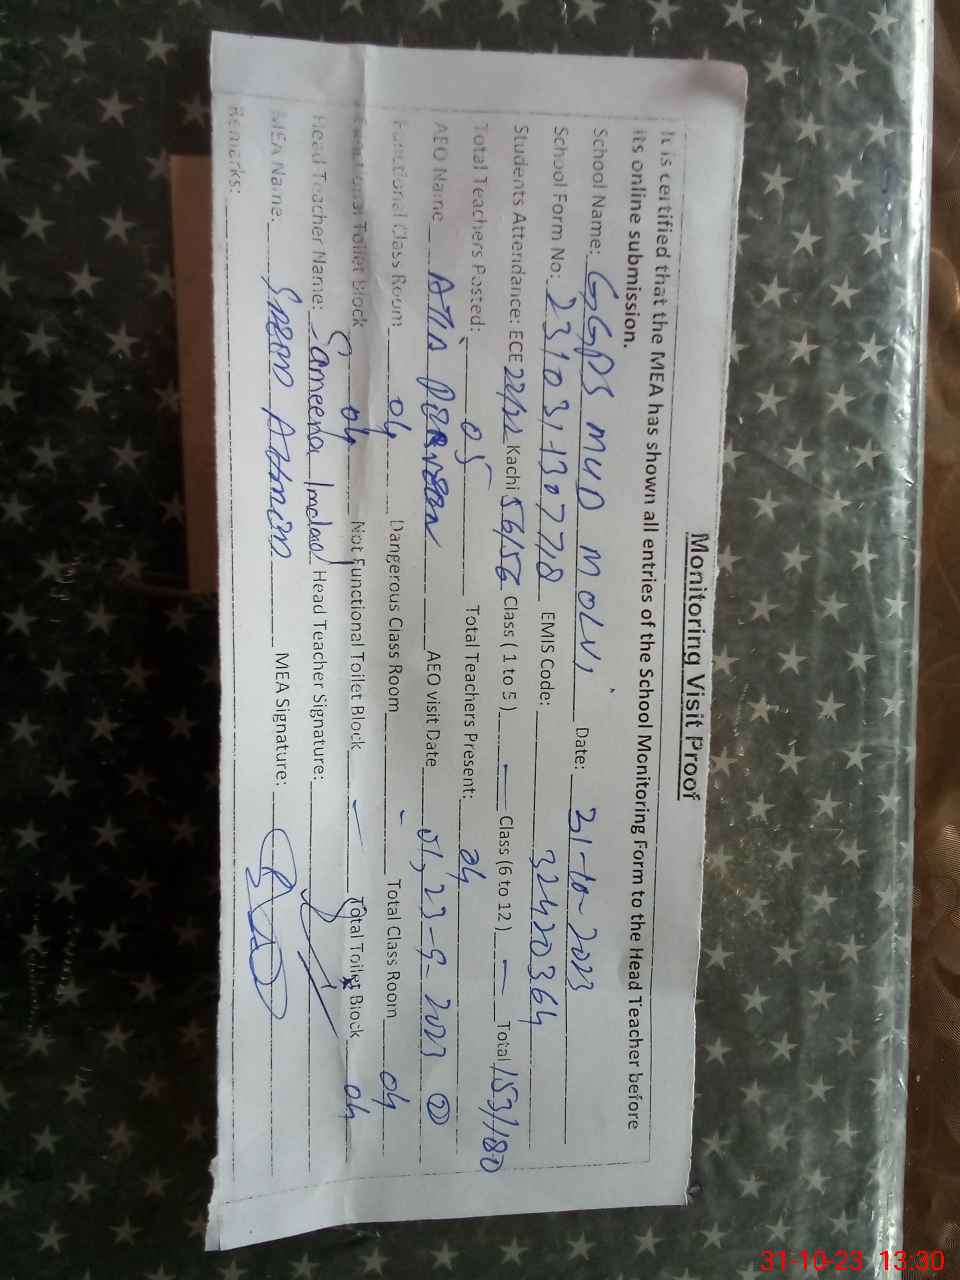 Monitoring Visit Proof
It is certified that the MEA has shown all entries of the School Monitoring Form to the Head Teacher before
its online submission.
School Name: GGPS MUD MOLVi Date: 31-10-2023
School Form No: 23103113077/8 EMIS Code: 32420364
Students Attendance: ECE 22/22 Kachi 56/56 Class ( 1 to 5 ) — Class (6 to 12 ) — Total 153/180
Total Teachers Posted: 05 Total Teachers Present: 04
AEO Name AEO visit Date 23-9-2023 ②
Functional Class Room 04 Dangerous Class Room - Total Class Room 04
Functional Toilet Block 04 Not Functional Toilet Block — Total Toilet Block 04
Head Teacher Name: Sameena Head Teacher Signature:
MEA Name: MEA Signature:
Remarks:
31-10-23 13:30